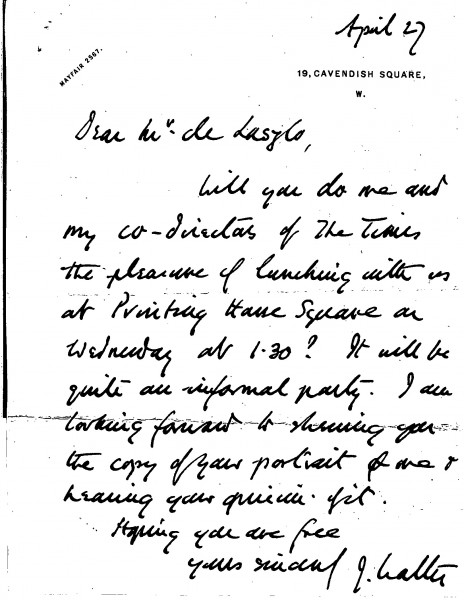 April 27
MAYFAIR 2567.
19, CAVENDISH SQUARE,
W.
Dear Mr. de Laszlo,
Will you do me and
my co-directors of The Times
the pleasure of lunching with us
at Printing House Square on
Wednesday at 1.30? It will be
quite an informal party. I am
looking forward to showing you
the copy of your portrait of me &
hearing your opinion of it.
Hoping you are free
yours sincerely J. Walter